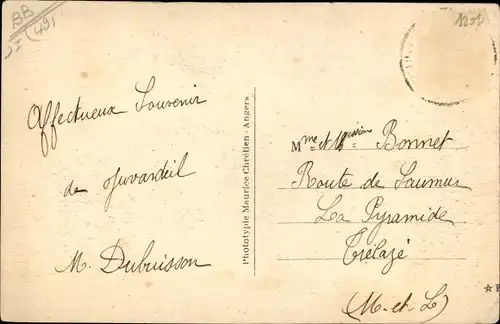 BB
(49)
1201
Affectueux Souvenir
de Juvardeil
M. Dubuisson
Phototypie Maurice Chrétien - Angers
Mme et Messieurs Bonnet
Route de Saumur
La Pyramide
Trélazé
(M-et-L)